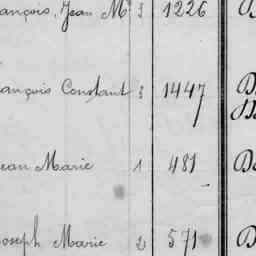 ançois, Jean M 3 1226
ançois Constant 3 1447
ean Marie 1 481
oseph Marie 2 571